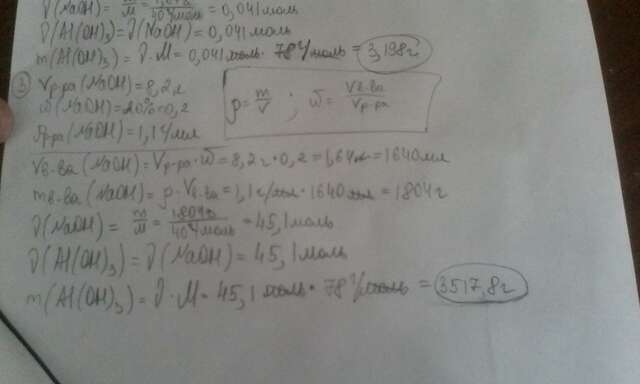 ν(NaOH) = m/M = 40г/моль = 0,041моль
ν(Al(OH)₃) = ν(NaOH) = 0,041моль
m(Al(OH)₃) = ν·M = 0,041моль · 78г/моль = 3,198г
③ Vр-ра(NaOH) = 8,2л
ω(NaOH) = 20% = 0,2
ρр-ра(NaOH) = 1,1г/мл
ρ = m/V ; ω = Vв-ва/Vр-ра
Vв-ва(NaOH) = Vр-ра·ω = 8,2г·0,2 = 1,64л = 1640мл
mв-ва(NaOH) = ρ·Vв-ва = 1,1г/мл · 1640мл = 1804г
ν(NaOH) = m/M = 1804г/40г/моль = 45,1моль
ν(Al(OH)₃) = ν(NaOH) = 45,1моль
m(Al(OH)₃) = ν·M = 45,1моль · 78г/моль = 3517,8г